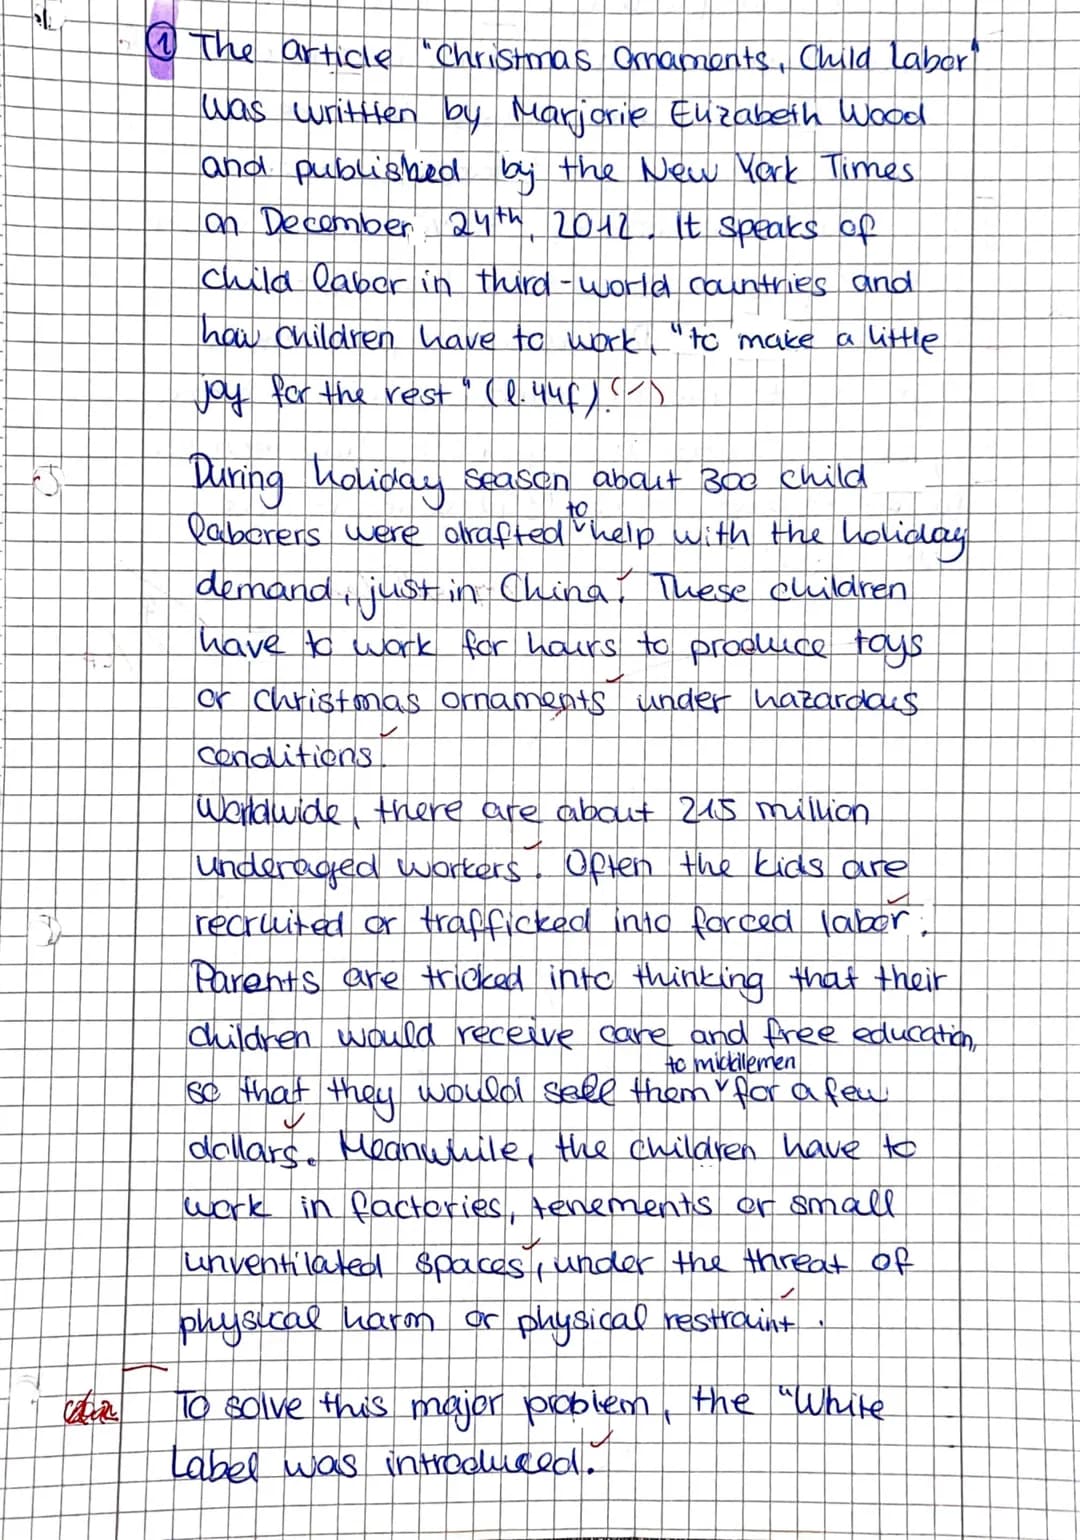 1 The article "Christmas Ornaments, Child Labor"
was writtten by Marjorie Elizabeth Wood
and published by the New York Times
on December 24th, 2012. It speaks of
child labor in third-world countries and
how children have to work, "to make a little
joy for the rest" (l.44f).
During holiday season about 300 child
to
laborers were drafted help with the holiday
demand, just in China. These children
have to work for hours to produce toys
or christmas ornaments under hazardous
conditions.
Worldwide, there are about 215 million
underaged workers. Often the kids are
recruited or trafficked into forced labor.
Parents are tricked into thinking that their
children would receive care and free education,
to middlemen
so that they would sell them for a few
dollars. Meanwhile, the children have to
work in factories, tenements or small
unventilated spaces, under the threat of
physical harm or physical restraint.
To solve this major problem, the "White
Label was introduced.